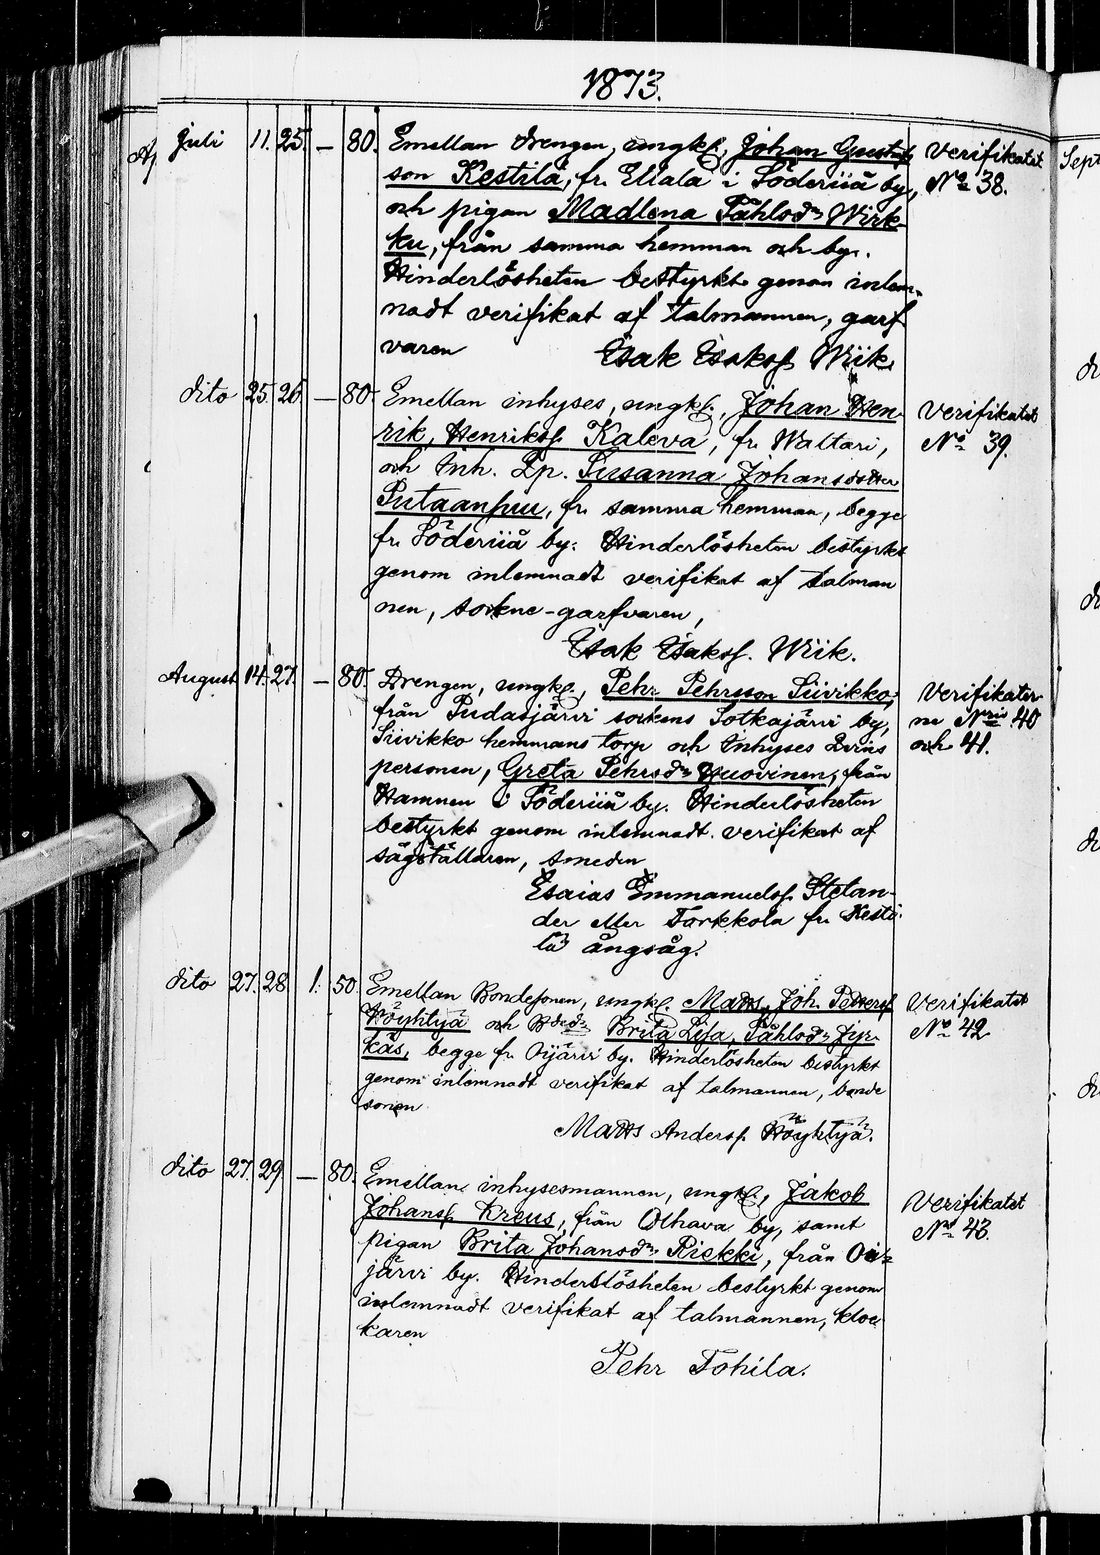 1873.
Juli 11. 25. — 80. Emellan Drengen, ungkl., Johan Gustaf
son Kestilä, fr. Ellala i Söderiiå by, Verifikatet
och pigan Madlena Påhlsdr Wirk- No 38.
ku, från samma hemman och by.
Hinderlösheten bestyrkt genom inlem-
nadt verifikat af talmannen, garf
varen Esak Esaksf. Wiik.
dito 25. 26. — 80. Emellan inhyses, ungkl., Johan Hen- Verifikatet
rik, Henriksf. Kaleva, fr. Waltari, No 39.
och Inh. Qp. Susanna Johansdotter
Putaanpuu, fr. samma hemman, begge
fr. Söderiiå by. Hinderlösheten bestyrkt
genom inlemnadt verifikat af talman
nen, sockne-garfvaren,
Esak Esaksf. Wiik.
August 14. 27. — 80. Drengen, ungkl., Pehr Pehrsson Siivikko, Verifikater
från Pudasjärvi sockens Sotkajärvi by, ne Nris 40
Siivikko hemmans torp och Inhyses Qvins och 41.
personen, Greta Pehrsdr Huovinen, från
Hamnen i Söderiiå by. Hinderlösheten
bestyrkt genom inlemnadt verifikat af
sågställaren, smeden
Esaias Emmanuelsf. Stelan-
der eller Torkkola fr. Kesti
lä ångsåg.
dito 27. 28. 1. 50. Emellan Bondesonen, ungkl. Matts, Joh. Pettersf Verifikatet
Höyhtyä och Bdedr Brita Lisa, Påhlsdr Jyr- No 42
käs, begge fr. Oijärvi by. Hinderlösheten bestyrkt
genom inlemnadt verifikat af talmannen, bonde
sonen
Matts Andersf. Höyhtyä.
dito 27. 29. — 80. Emellan inhysesmannen, ungkl., Jakob Verifikatet
Johansf. Kreus, från Olhava by, samt No 43.
pigan Brita Johansdr Riekki, från Oi-
järvi by. Hinderslösheten bestyrkt genom
inlemnadt verifikat af talmannen, kloc
karen
Pehr Tohila.
Sept